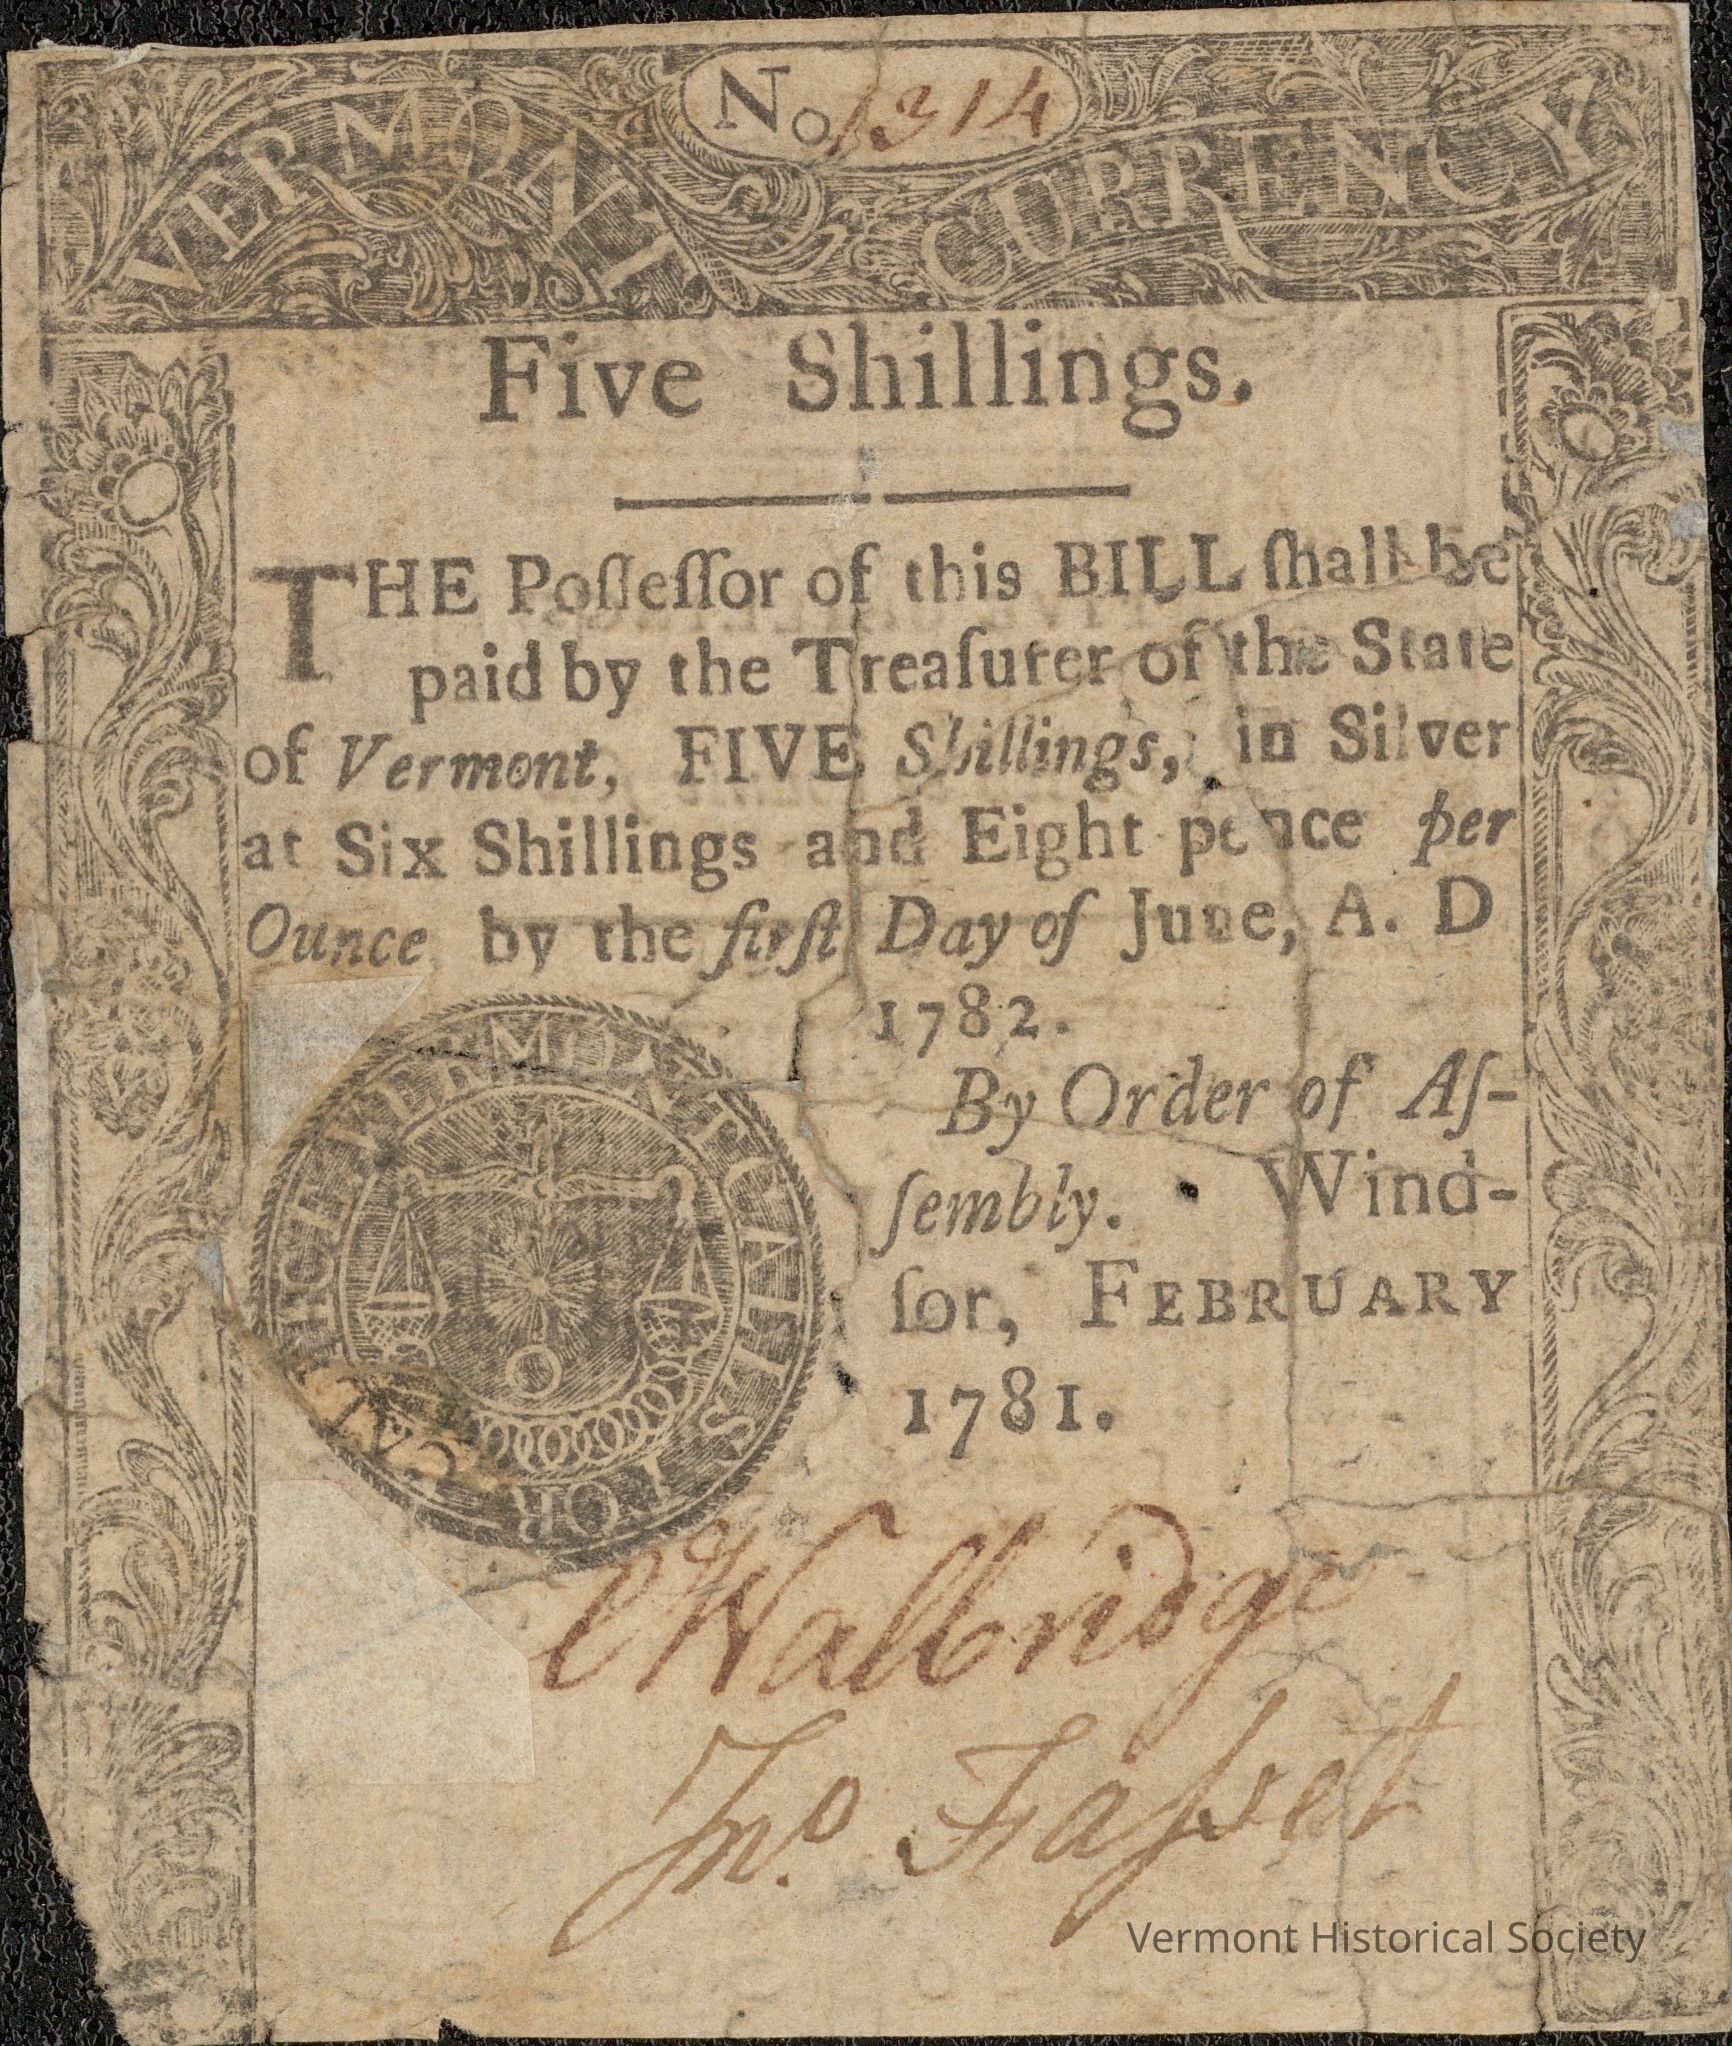 No 1314
VERMONT CURRENCY
Five Shillings.
THE Poſſeſſor of this BILL ſhall be
paid by the Treaſurer of the State
of Vermont, FIVE Shillings, in Silver
at Six Shillings and Eight pence per
Ounce by the firſt Day of June, A. D
1782.
By Order of Aſ-
ſembly. Wind-
ſor, FEBRUARY
1781.
VERMONT CALLS FOR
Walbridge
Jnº. Faſset
Vermont Historical Society